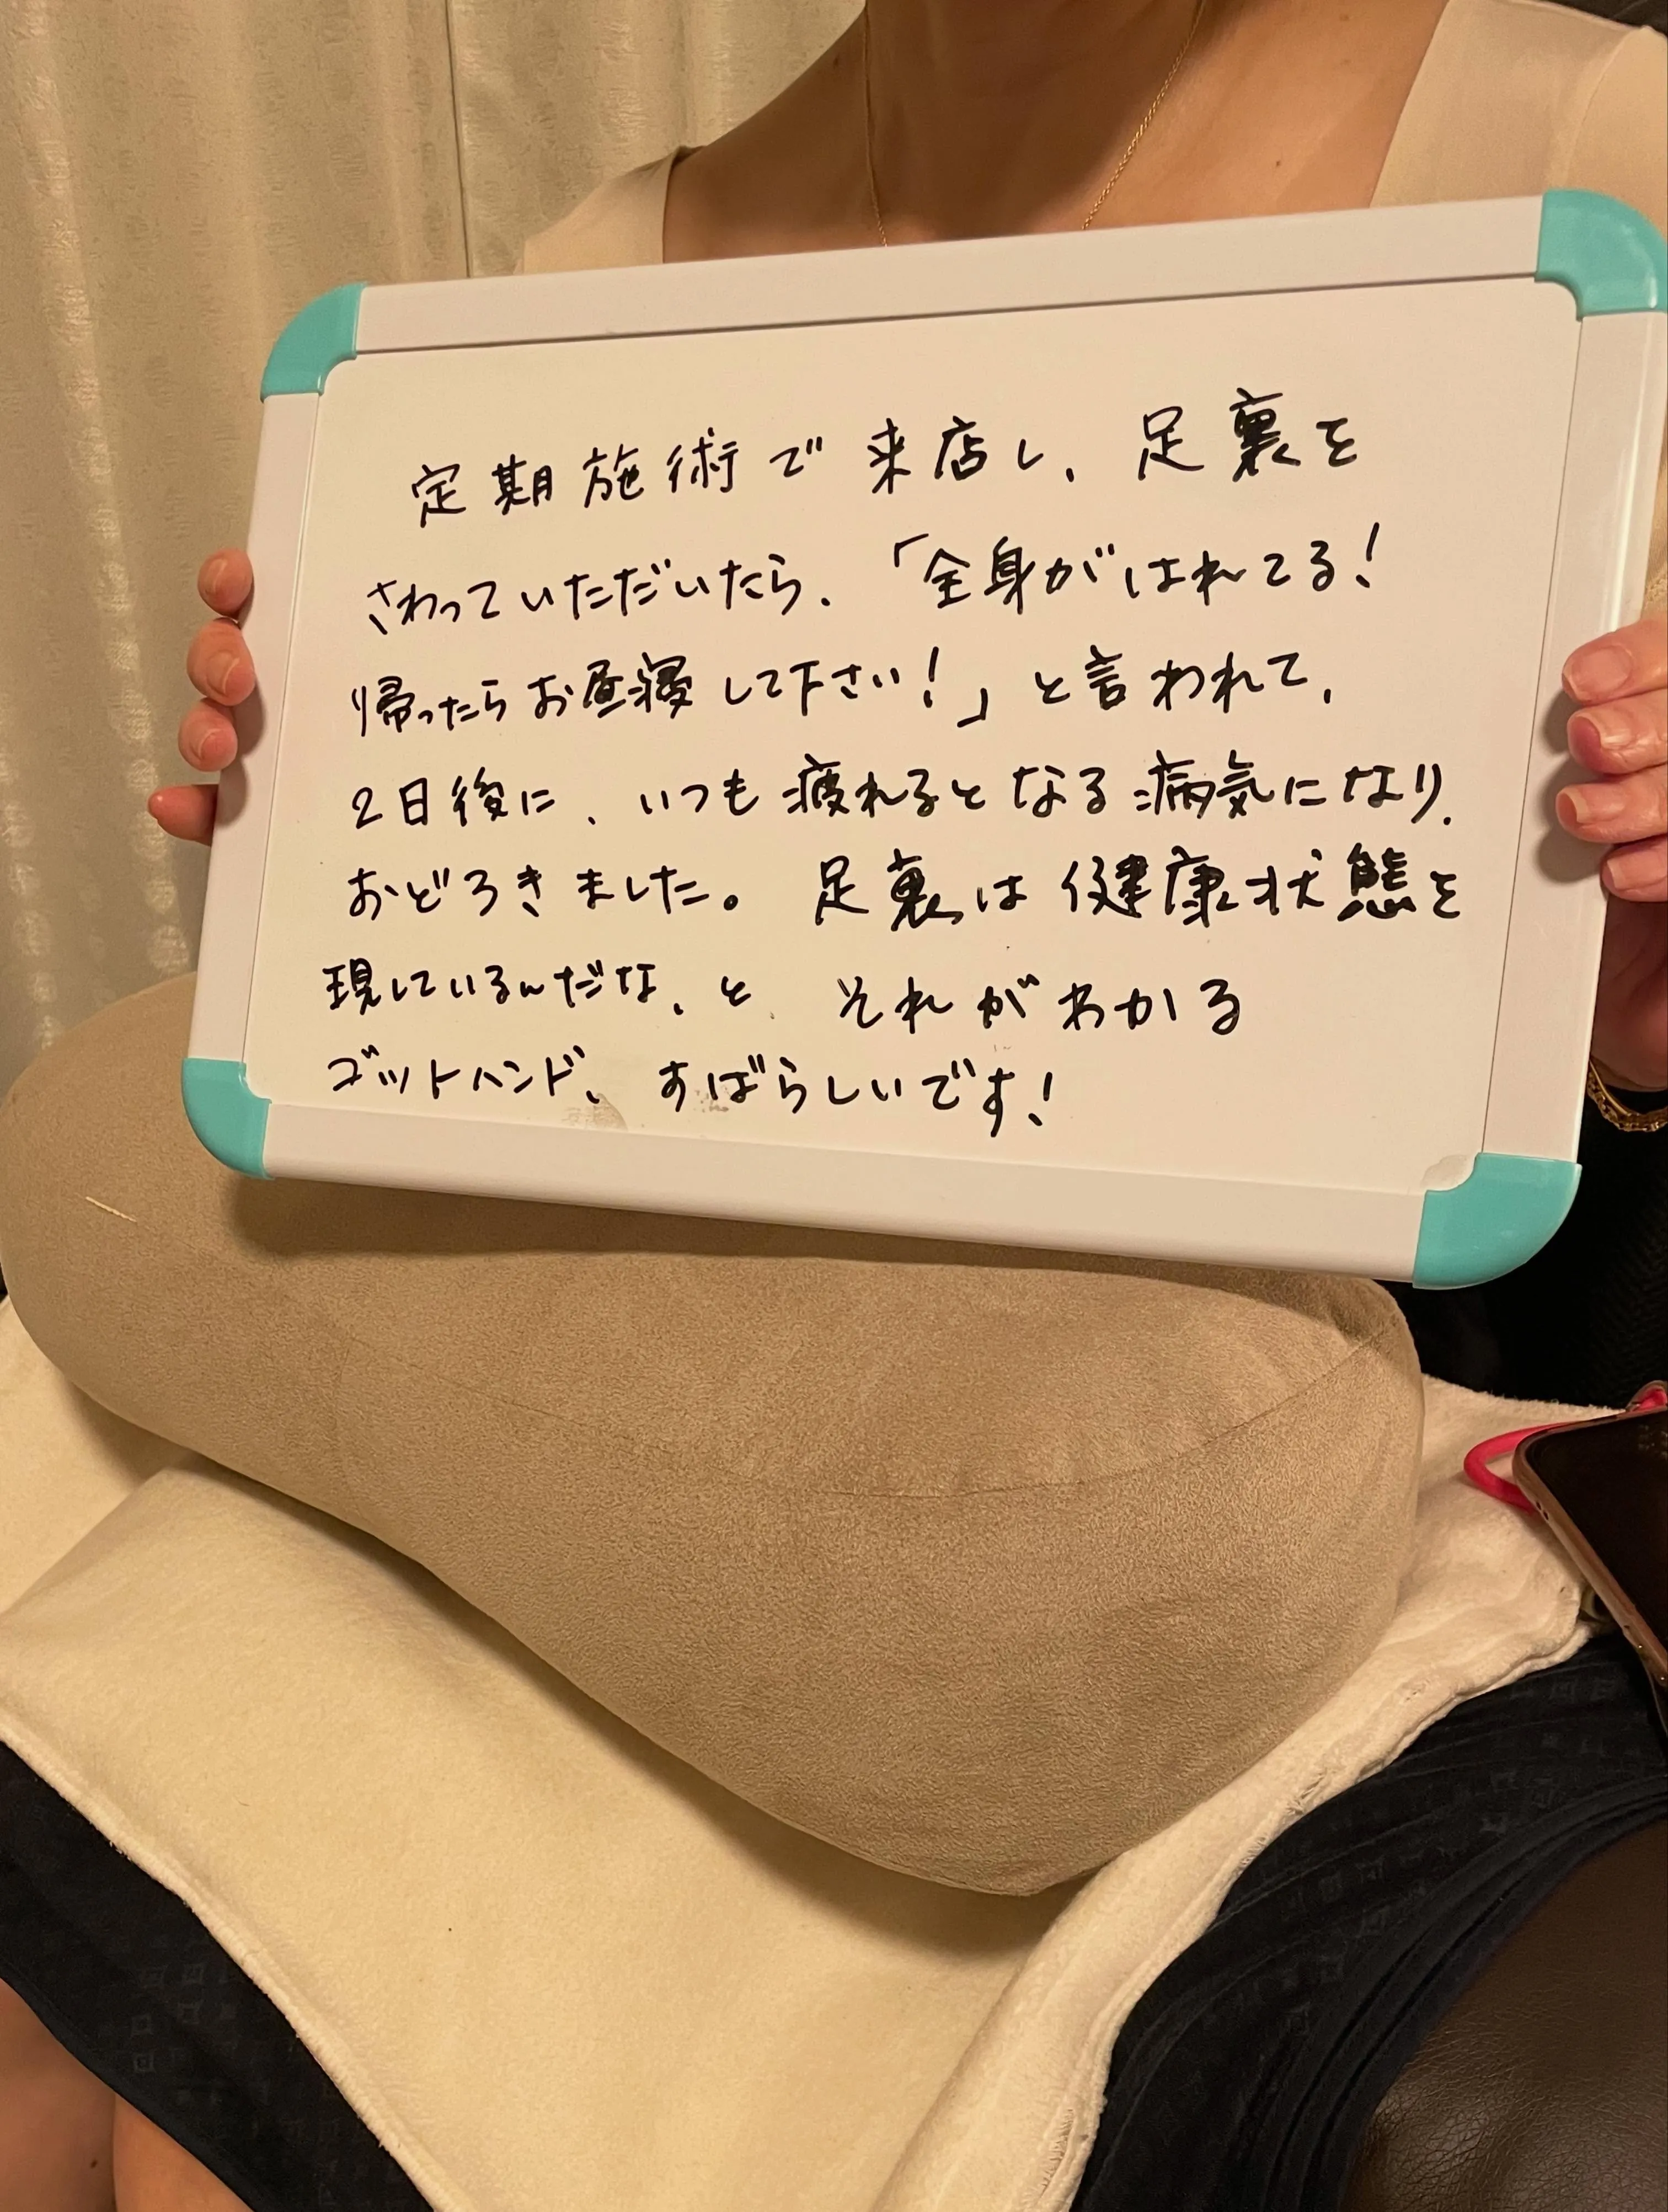 定期施術で来店し、足裏を
さわっていただいたら、「全身がはれてる!
帰ったらお昼寝して下さい!」と言われて、
2日後に、いつも疲れるとなる病気になり、
おどろきました。足裏は健康状態を
現しているんだな、と それがわかる
ゴットハンド、すばらしいです!